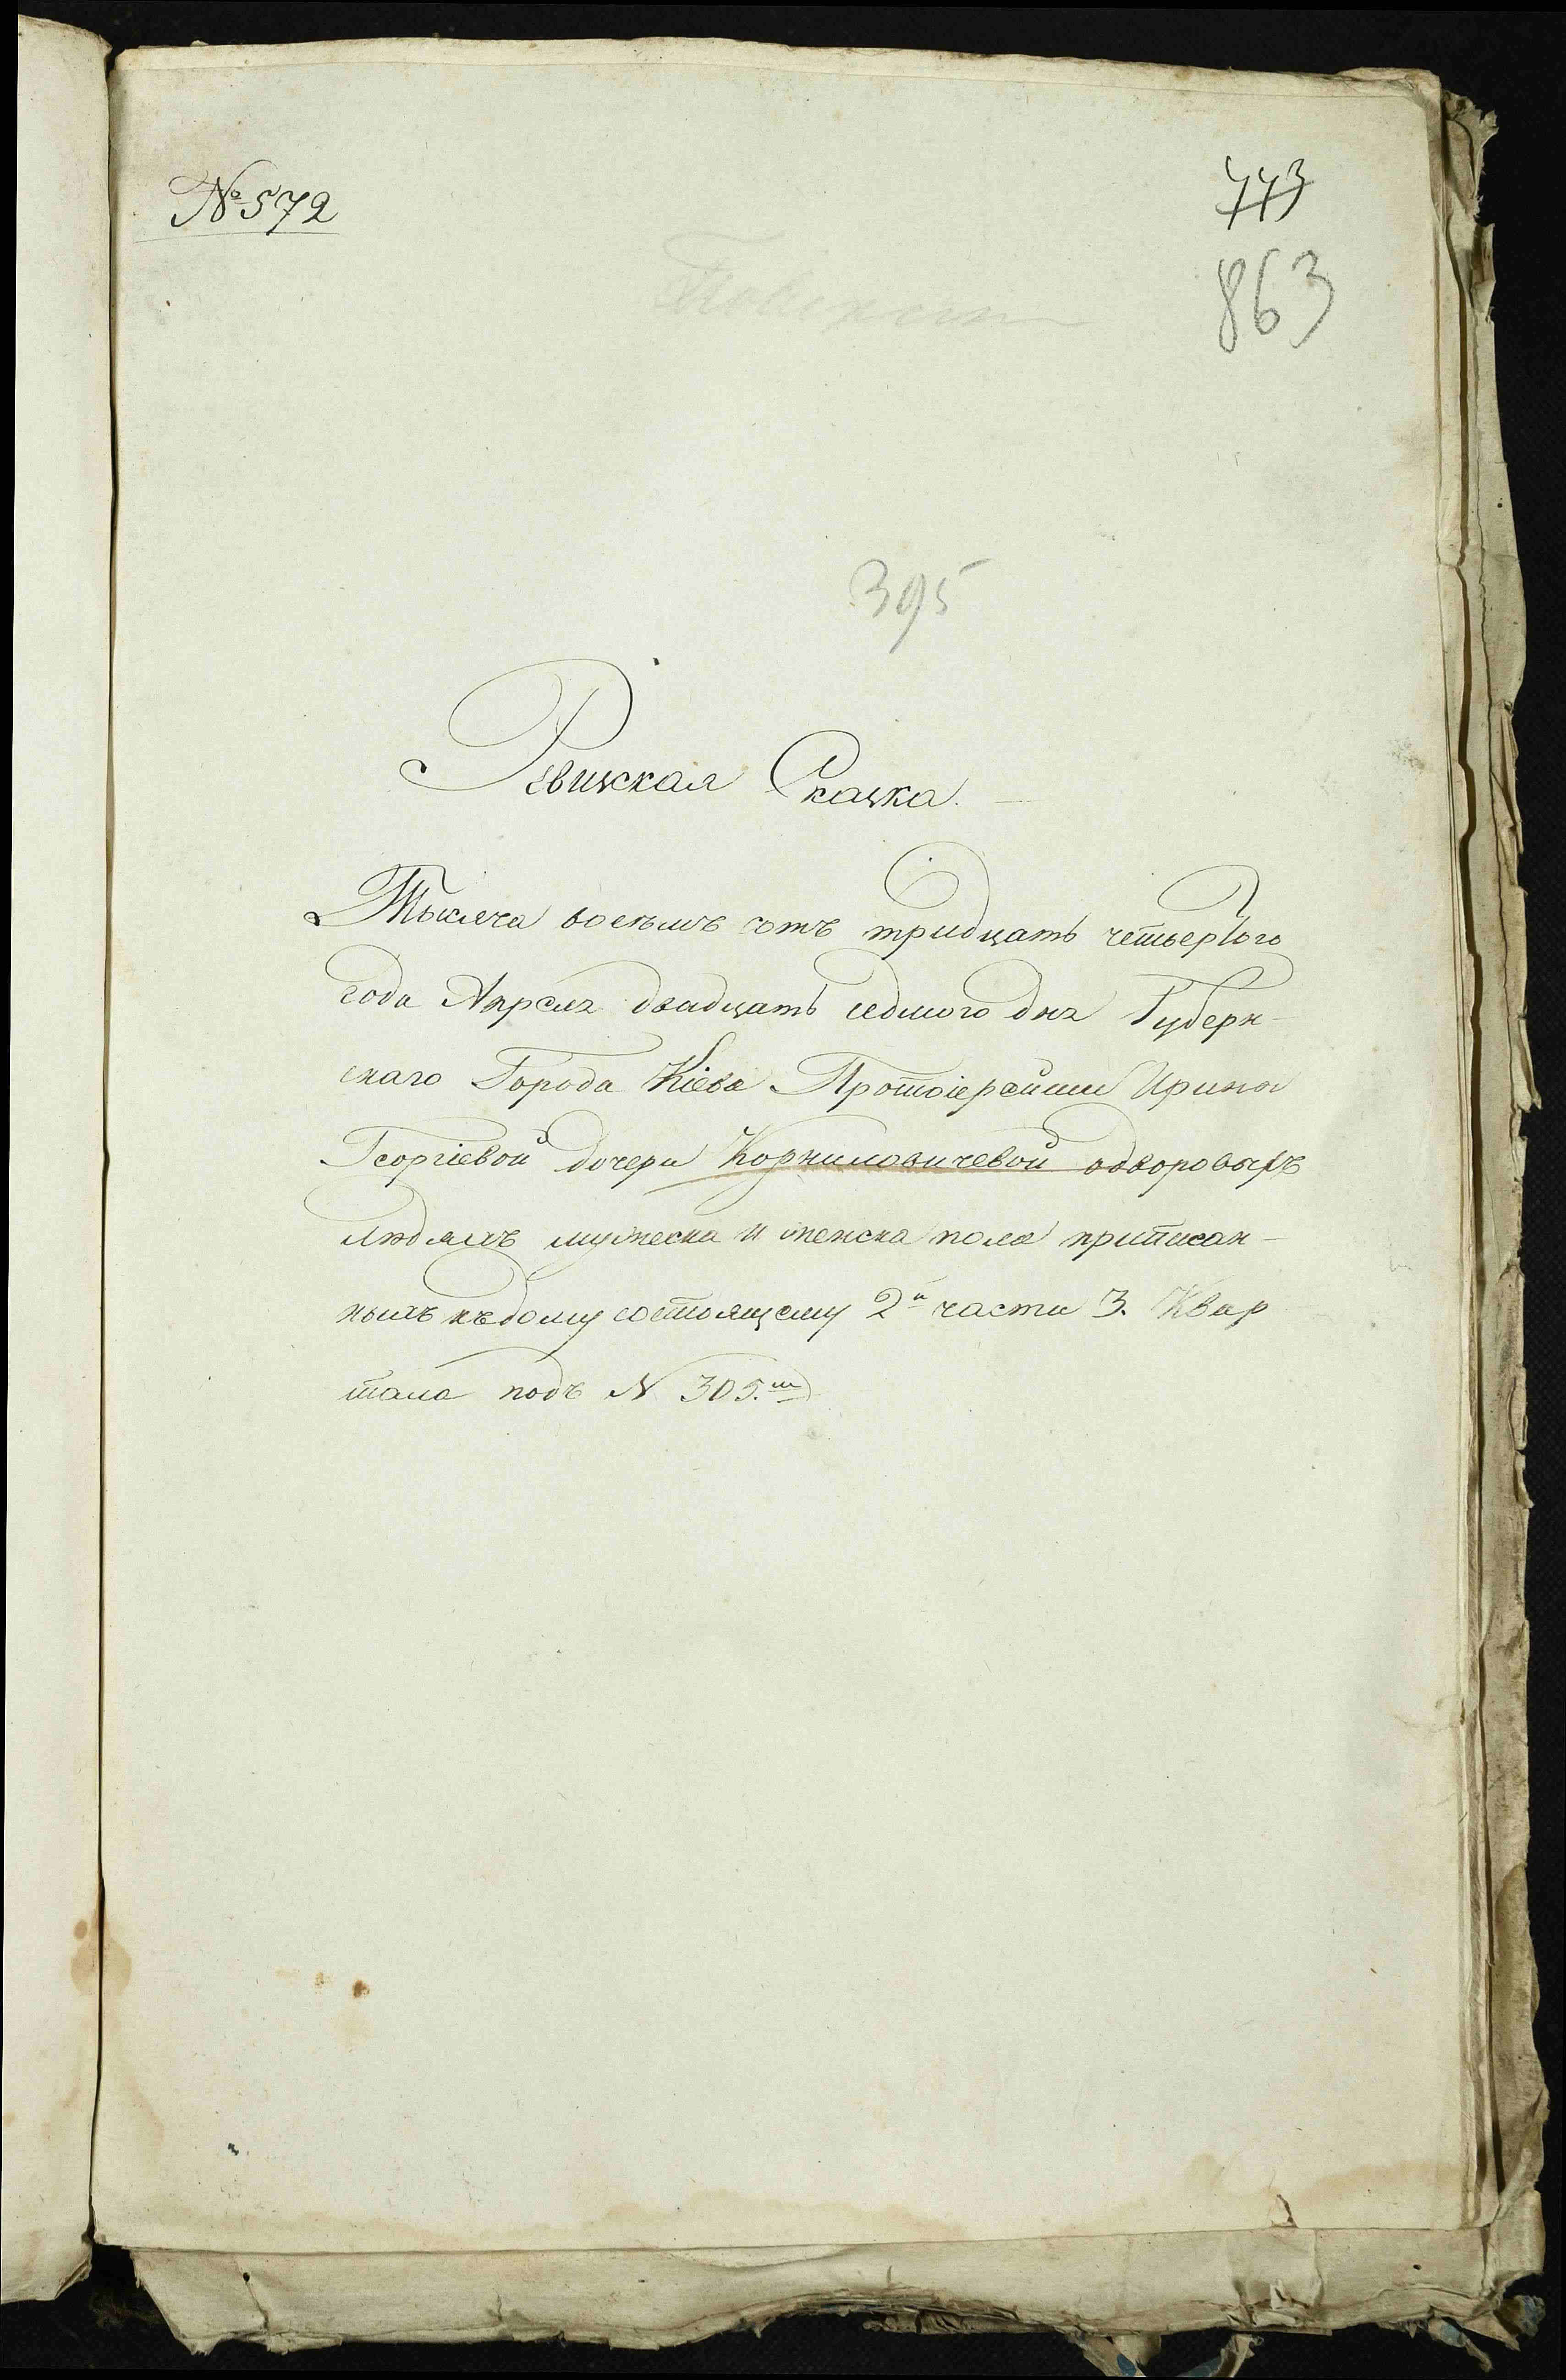 № 572
773
863
395
Ревизская Сказка.
Тысяча восемъ сотъ тридцать четвертого
года Апреля двадцать седмого дня Губерн-
скаго Города Кіева Протоіерейши Ирины
Георгіевой дочери Корниловичевой одворовыхъ
людяхъ мужеска и женска пола приписан-
ныхъ къ дому состоящему 2й части 3. Квар
тала подъ N 305.мъ